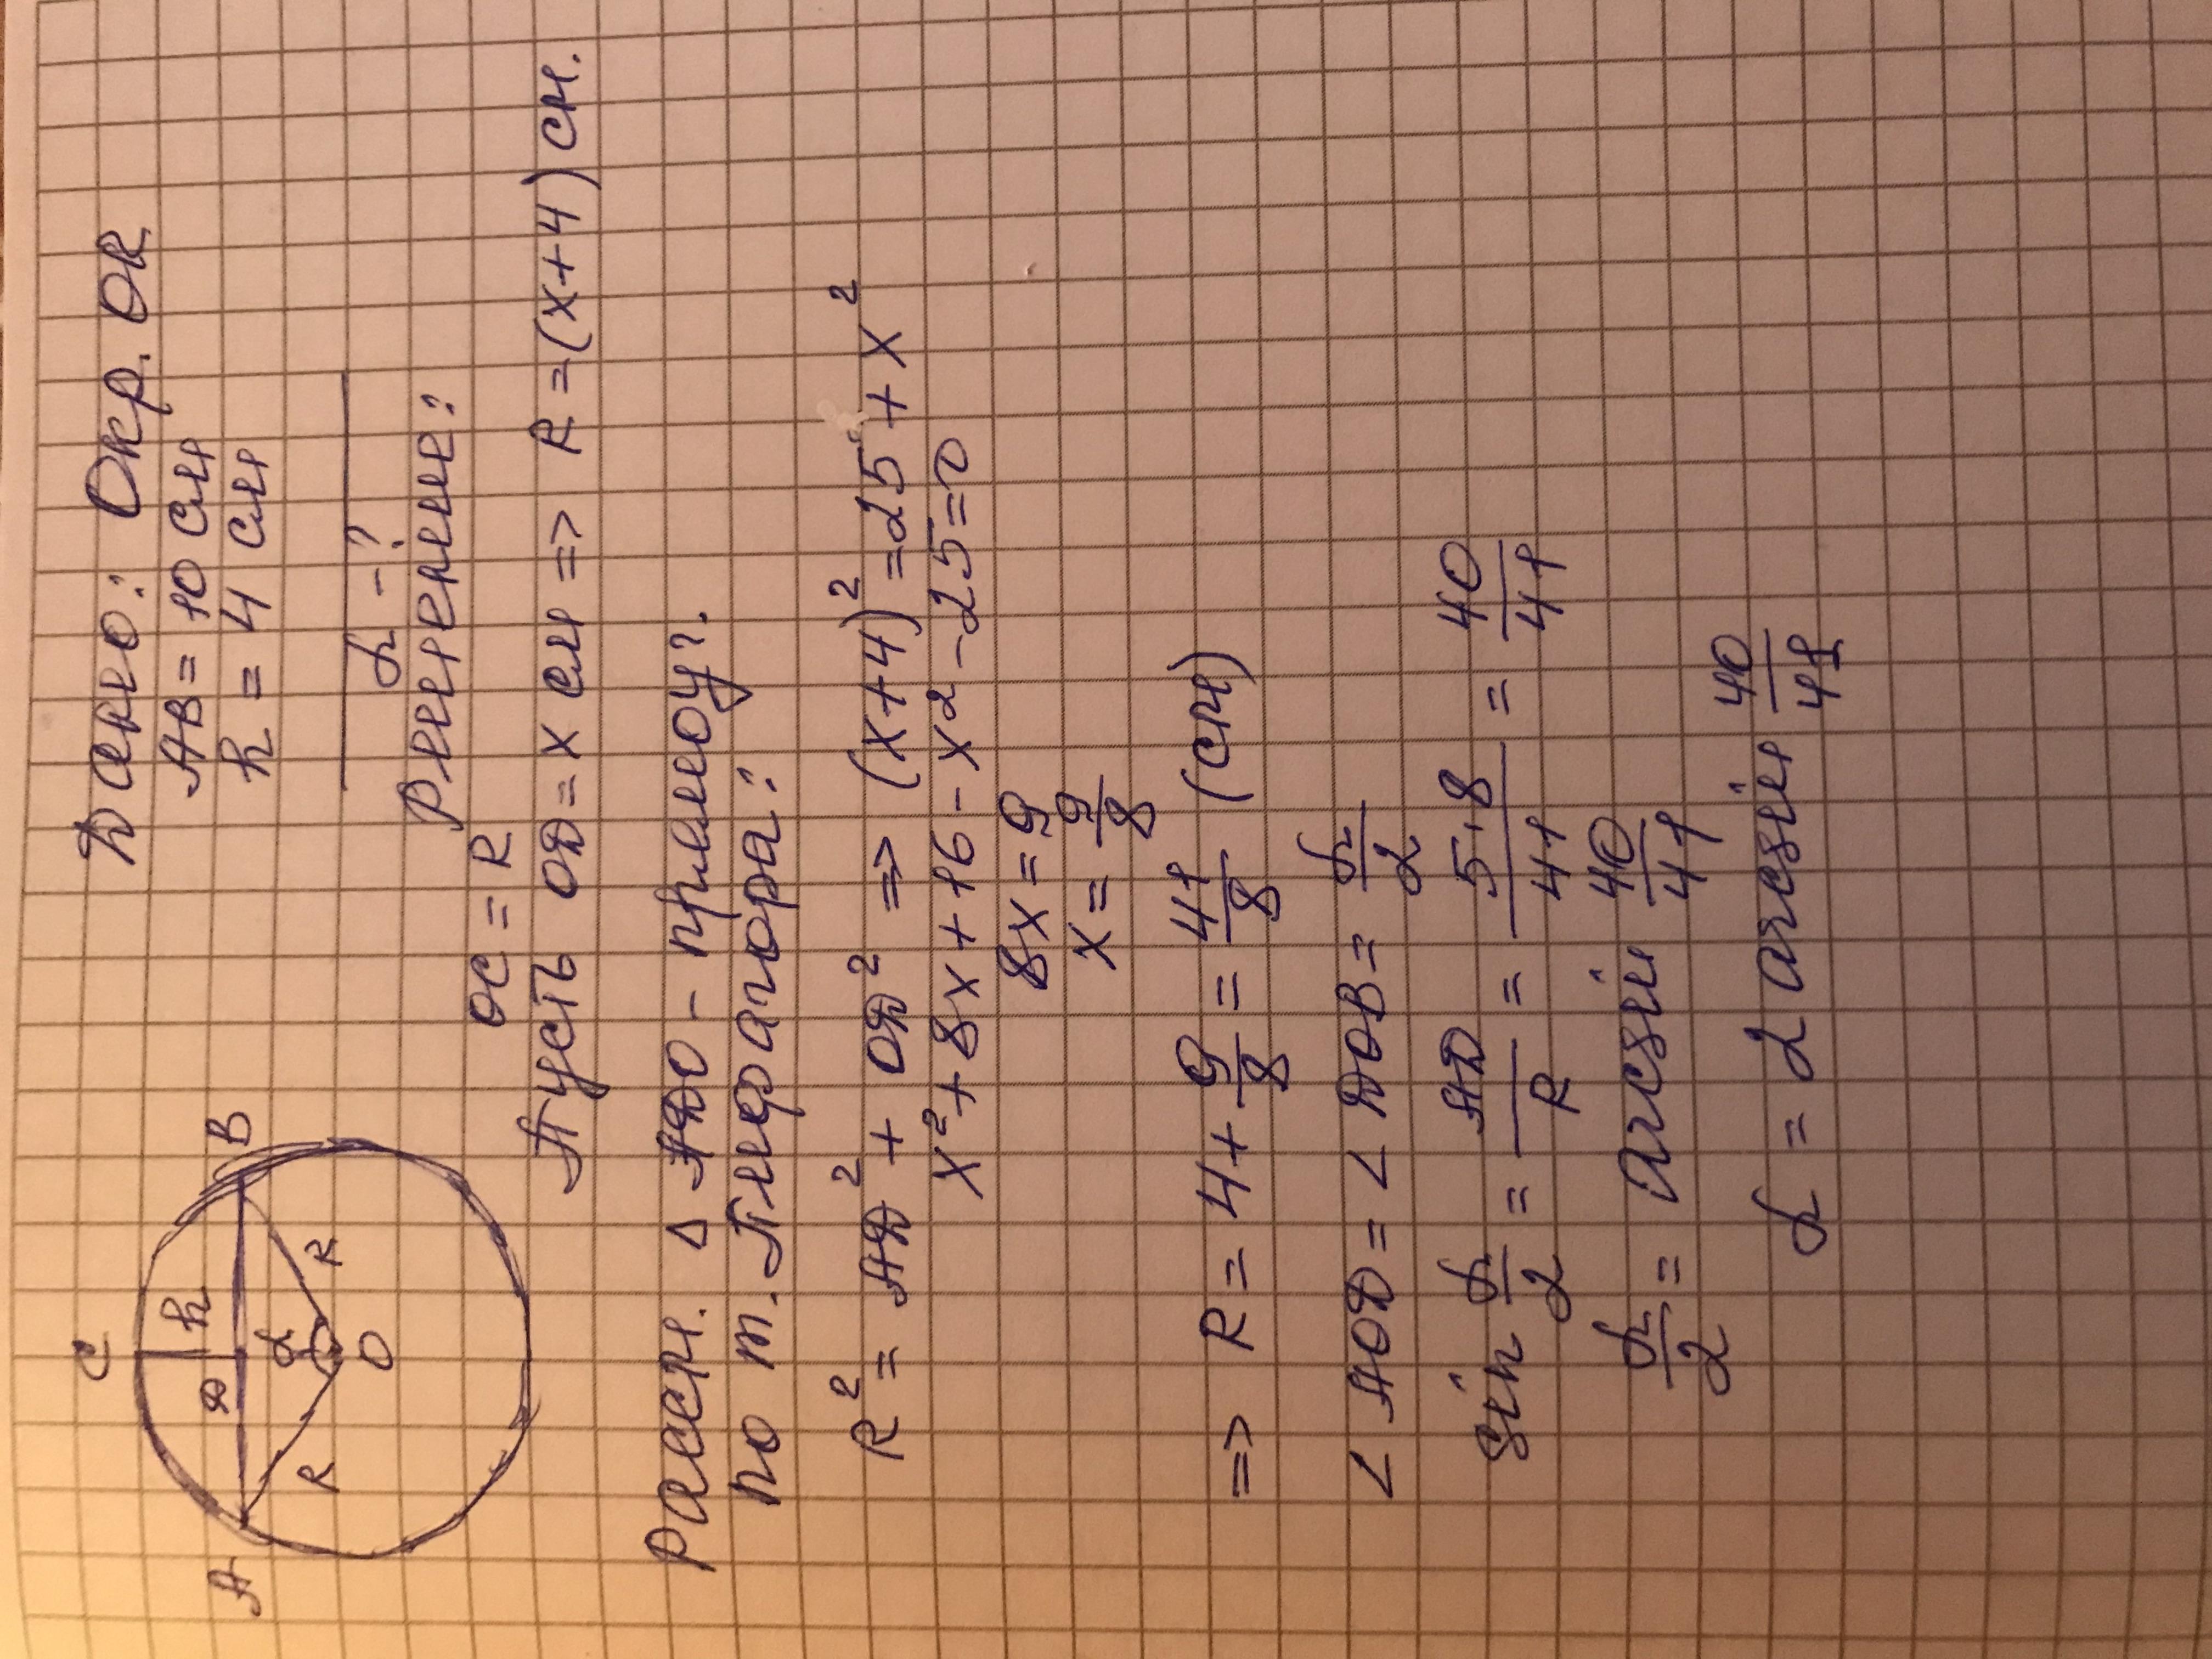 C
A
B
D
h
α
R
R
O
Дано: Окр. OR
AB = 10 см
h = 4 см
α - ?
Решение:
OC = R
Пусть OD = x см => R = (x+4) см.
Рассм. Δ ADO - прямоуг.
по т. Пифагора:
R² = AD² + OD² => (x+4)² = 25 + x²
x² + 8x + 16 - x² - 25 = 0
8x = 9
x = 9/8
=> R = 4 + 9/8 = 41/8 (см)
∠ AOD = ∠ DOB = α/2
sin α/2 = AD/R = 5·8/41 = 40/41
α/2 = arcsin 40/41
α = 2 arcsin 40/41